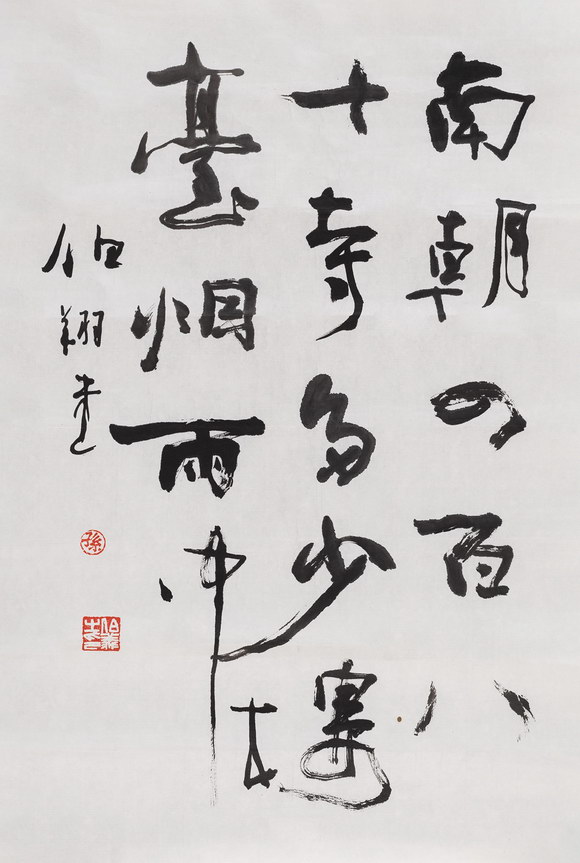 南朝四百八
十寺多少樓
臺烟雨中
伯翔書
孫